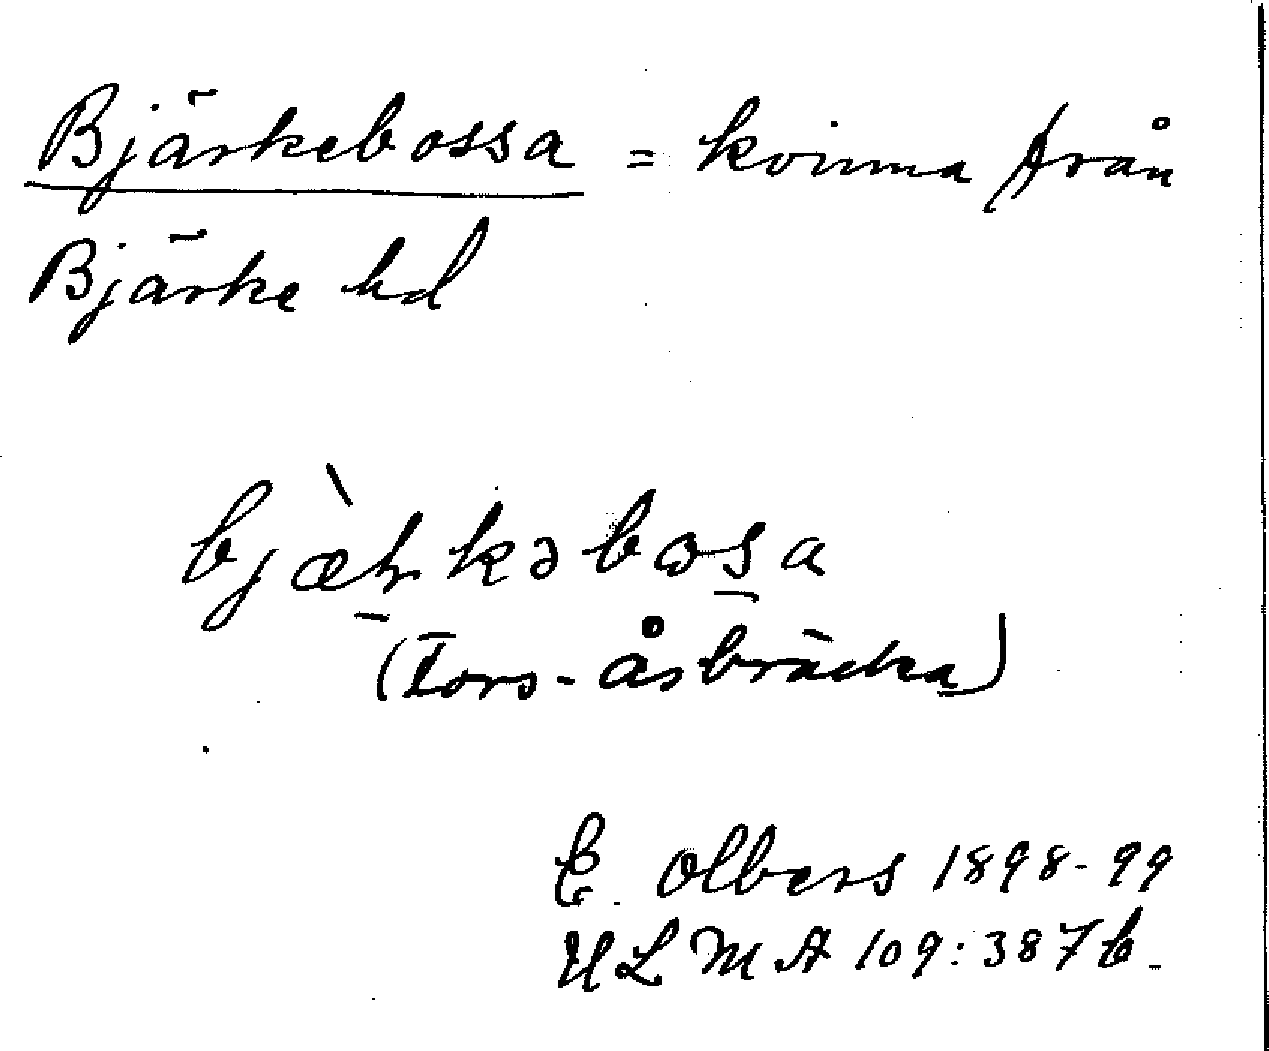 Bjärkebossa = kvinna från
Bjärke hd
(Fors-Åsbräcka)
E. Olbers 1898-99
ULMA 109:387 b.